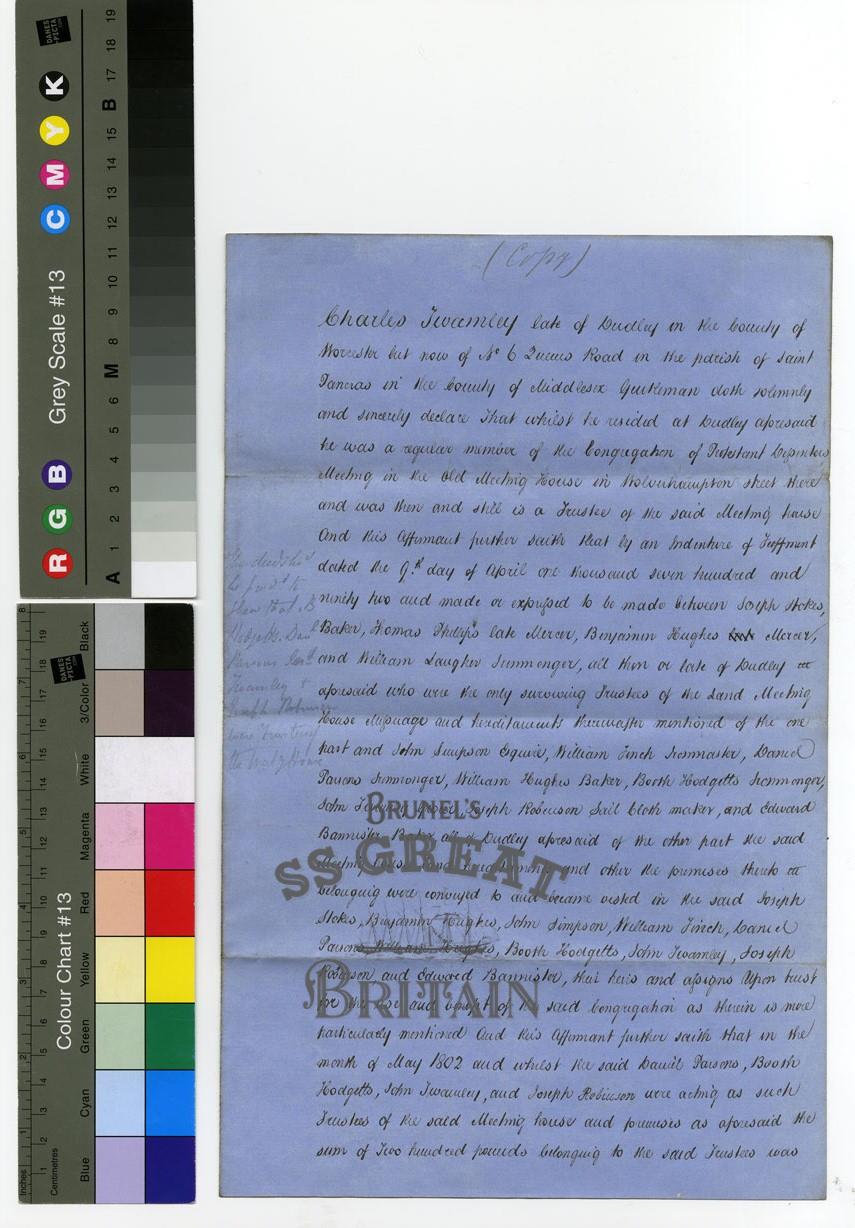 (Copy)
Charles Twamley late of Dudley in the County of
Worcester but now of No 6 Queens Road in the parish of Saint
Pancras in the County of Middlesex Gentleman doth solemnly
and sincerely declare That whilst he resided at Dudley aforesaid
he was a regular member of the Congregation of Protestant Dissenters
Meeting in the Old Meeting House in Wolverhampton street there
and was then and still is a Trustee of the said Meeting house
And this Affirmant further saith that by an Indenture of Feoffment
dated the 9th day of April one thousand seven hundred and
ninety two and made or expressed to be made between Joseph Stokes,
Baker, Thomas Phillips late Mercer, Benjamin Hughes Mercer,
and William Laugher Ironmonger, all then or late of Dudley
aforesaid who were the only surviving Trustees of the Land Meeting
House Messuage and hereditaments thereinafter mentioned of the one
part and John Simpson Esquire, William Finch Ironmaster, Daniel
Parsons Ironmonger, William Hughes Baker, Booth Hodgetts Ironmonger,
John Joseph Robinson Sail Cloth maker, and Edward
Bannister Baker all of Dudley aforesaid of the other part the said
Meeting and other the premises thereto
belonging were conveyed to and became vested in the said Joseph
Stokes, Benjamin Hughes, John Simpson, William Finch, Daniel
Parsons, William Hughes, Booth Hodgetts, John Twamley, Joseph
Robinson and Edward Bannister, their heirs and assigns Upon trust
for the use and benefit of the said Congregation as therein is more
particularly mentioned And this Affirmant further saith that in the
month of May 1802 and whilst the said Daniel Parsons, Booth
Hodgetts, John Twamley, and Joseph Robinson were acting as such
Trustees of the said Meeting house and premises as aforesaid the
sum of Two hundred pounds belonging to the said Trustees was
shew that B
Hodgetts, Danl
Parsons
Twamley &
Joseph Robinson
were Trustees
BRUNEL'S
SS GREAT
BRITAIN
Grey Scale #13
R G B C M Y K
DANES
PICTA
.COM
A 1 2 3 4 5 6 M 8 9 10 11 12 13 14 15 B 17 18 19
Colour Chart #13
Blue Cyan Green Yellow Red Magenta White 3/Color Black
DANES
PICTA
.COM
Inches 1 2 3 4 5 6 7 8
Centimetres